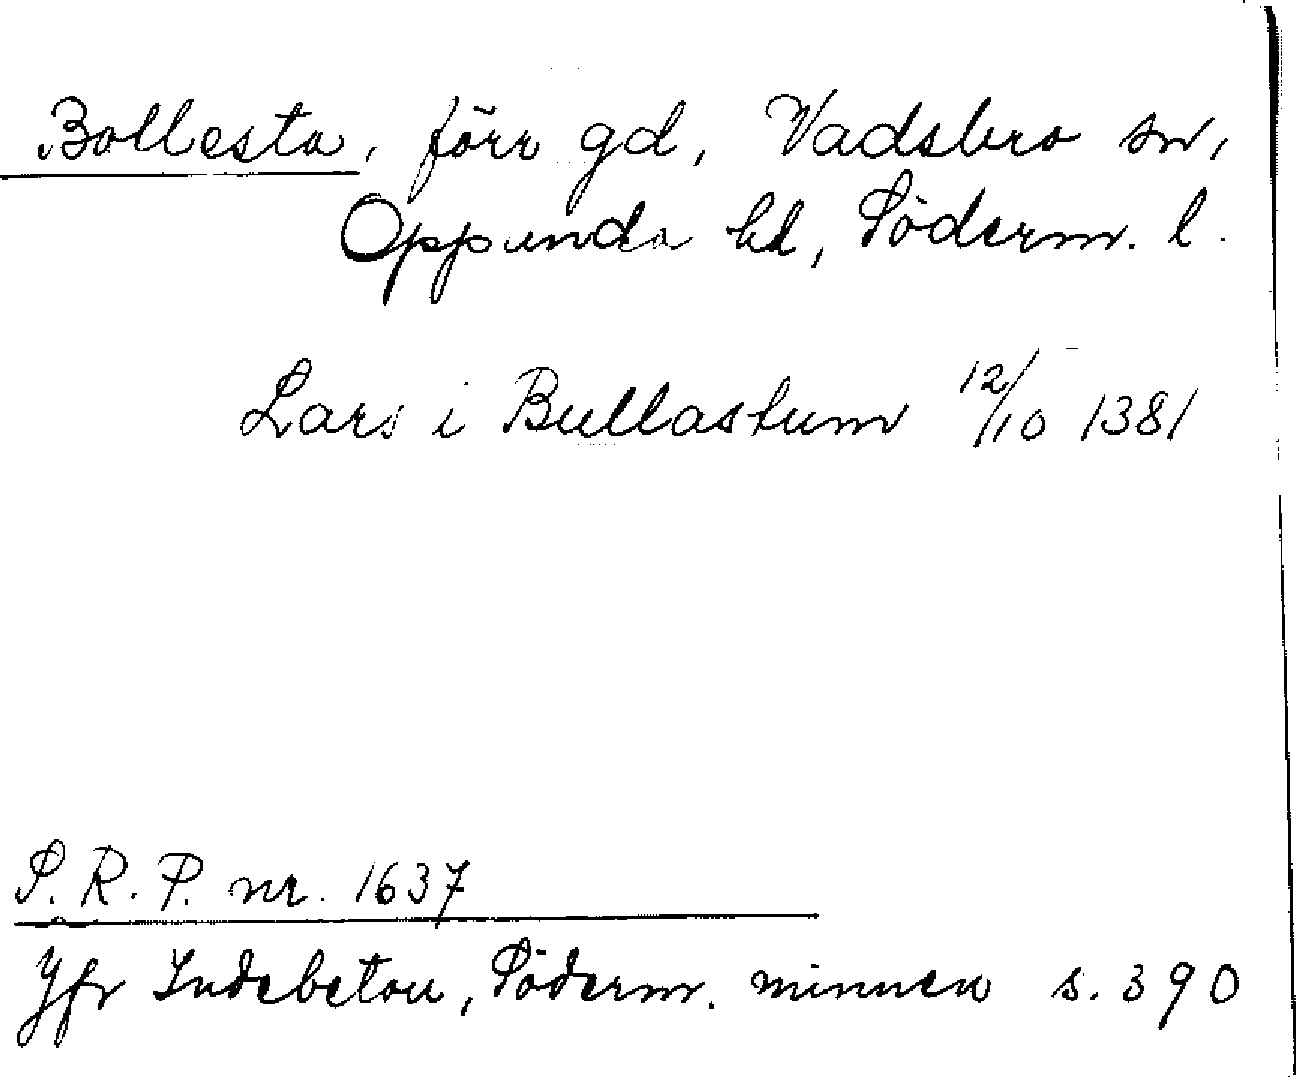 Bollesta, förr gd, Vadsbro sn,
Oppunda hd, Söderm. l.
Lars i Bullastum 12/10 1381
S. R. P. nr. 1637
Jfr Indebetou, Söderm. minnen s. 390